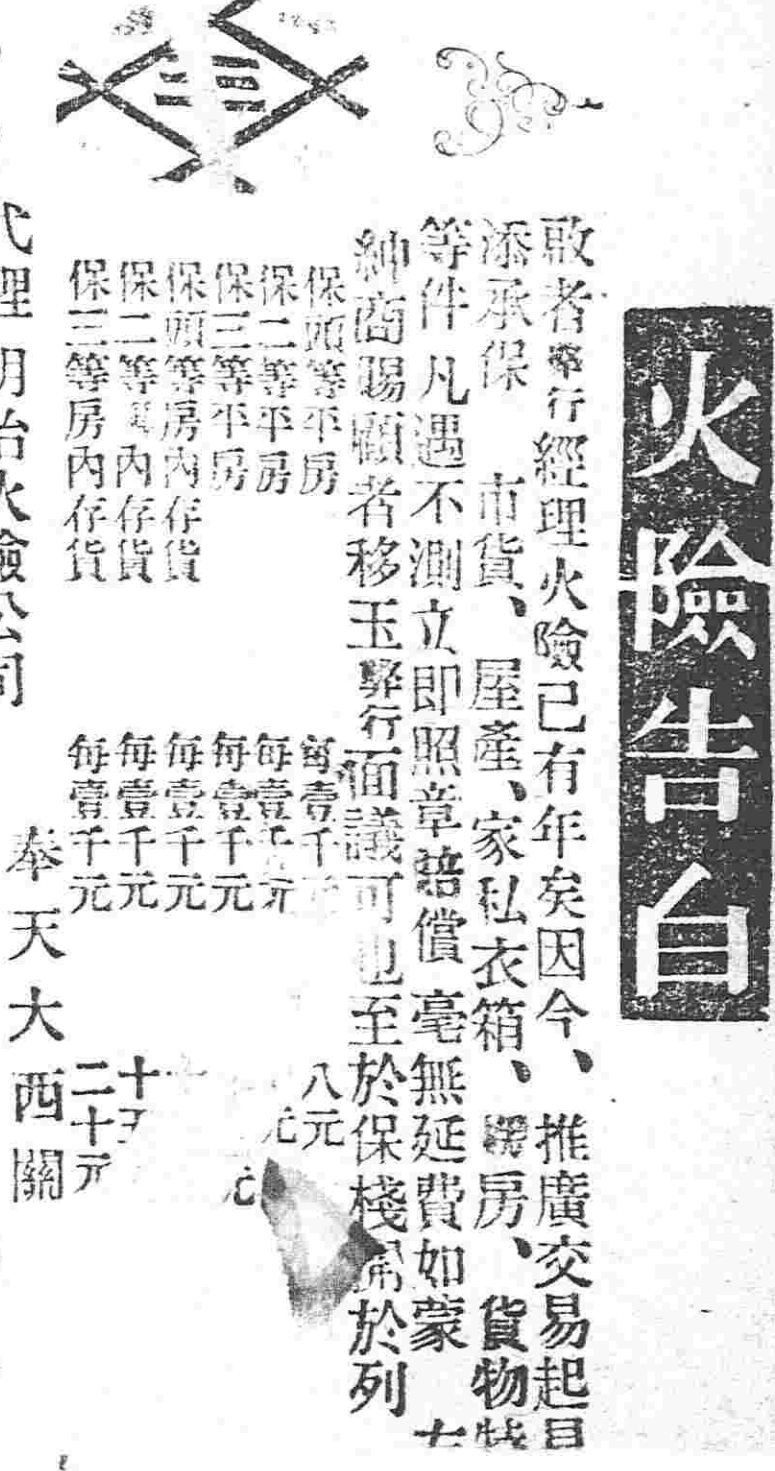 火險告白
敬者弊行經理火險已有年矣因今、推廣交易起見
添承保 市貨、屋產、家私衣箱、房、貨物
等件凡遇不測立即照章賠償毫無延費如蒙
紳商賜顧者移玉弊行面議可也至於保棧於列
保頭等平房 每壹千 八元
保二等平房 每壹千元 元
保三等平房 每壹千元 元
保頭等房內存貨 每壹千元
保二等內存貨 每壹千元 十五
保三等房內存貨 每壹千元 二十元
代理明治火險公司 奉天大西關